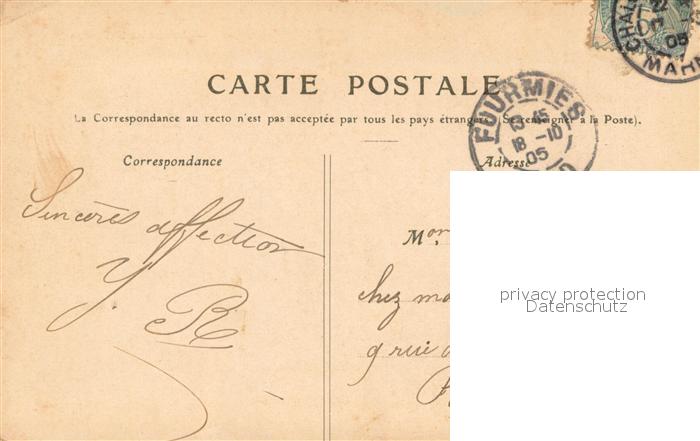 CHAL
05
MARN
CARTE POSTALE
FOURMIES
15 45
18 -10
05
La Correspondance au recto n'est pas acceptée par tous les pays étrangers (Se renseigner à la Poste).
Correspondance
Adresse
Sincères affection
Y. R
Mon
chez ma
9 rue
privacy protection
Datenschutz